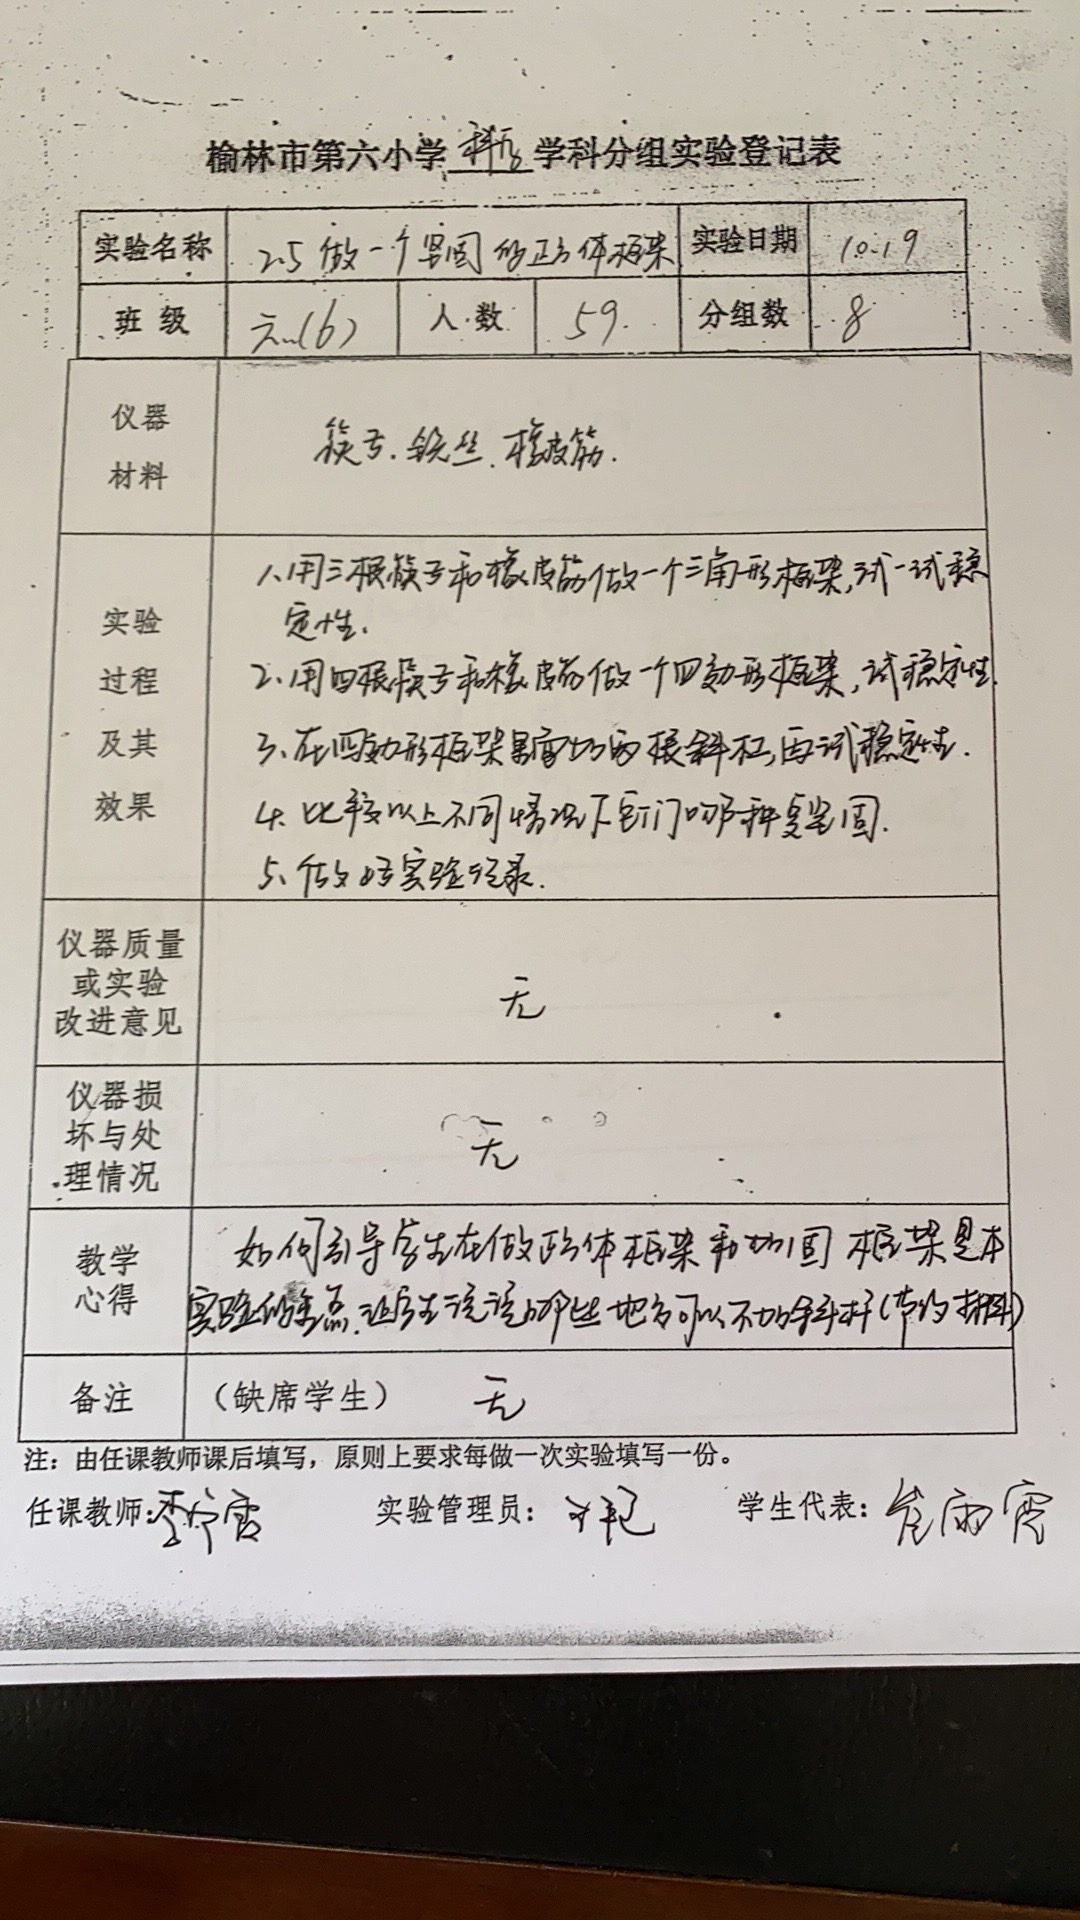 榆林市第六小学 科学 学科分组实验登记表
实验名称 2.5 做一个坚固的正方体框架 实验日期 10.19
班级 六(6) 人数 59. 分组数 8
仪器
材料
筷子.铁丝.橡皮筋.
实验
过程
及其
效果
1、用三根筷子和橡皮筋做一个三角形框架,试一试稳
定性.
2、用四根筷子和橡皮筋做一个四边形框架,试稳定性.
3、在四边形框架里面加两根斜杠,再试稳定性.
4、比较以上不同情况下它们哪种更坚固.
5、做好实验记录.
仪器质量
或实验
改进意见
无
仪器损
坏与处
理情况
无
教学
心得
如何引导学生在做正方体框架和加固框架是本
实验的重点,让学生说说哪些地方可以不加斜杆(节约材料)
备注 (缺席学生) 无
注：由任课教师课后填写，原则上要求每做一次实验填写一份。
任课教师: 实验管理员: 学生代表: